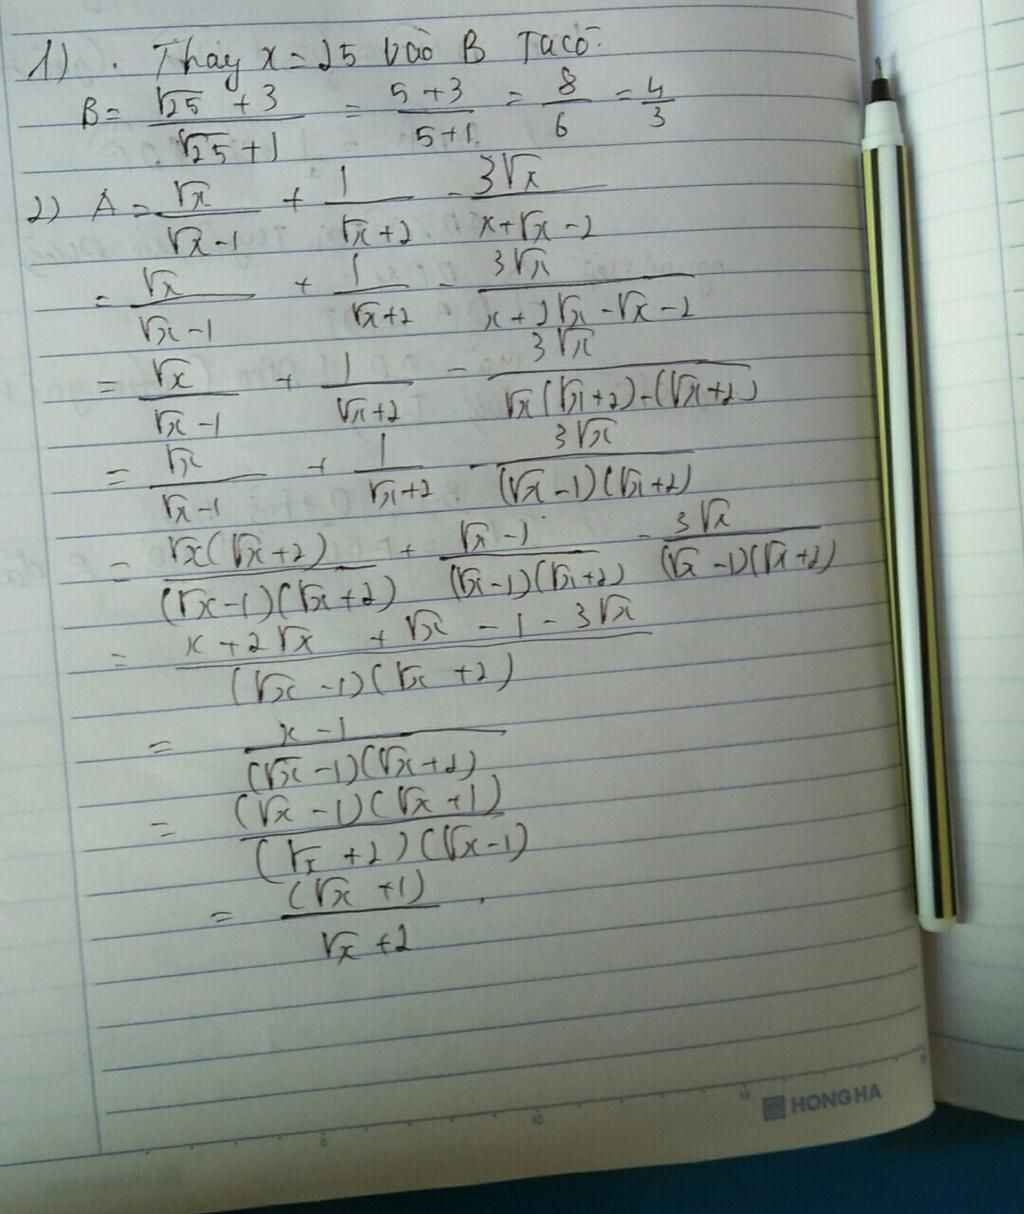 1). Thay x = 25 vào B Ta có:
B = (√25 + 3)/(√25 + 1) = (5+3)/(5+1) = 8/6 = 4/3
2) A = √x/(√x-1) + 1/(√x+2) - 3√x/(x+√x-2)
= √x/(√x-1) + 1/(√x+2) - 3√x/(x+2√x-√x-2)
= √x/(√x-1) + 1/(√x+2) - 3√x/(√x(√x+2)-(√x+2))
= √x/(√x-1) + 1/(√x+2) - 3√x/((√x-1)(√x+2))
= √x(√x+2)/((√x-1)(√x+2)) + (√x-1)/((√x-1)(√x+2)) - 3√x/((√x-1)(√x+2))
= (x+2√x + √x - 1 - 3√x)/((√x-1)(√x+2))
= (x-1)/((√x-1)(√x+2))
= (√x-1)(√x+1)/((√x+2)(√x-1))
= (√x+1)/(√x+2).
HONG HA